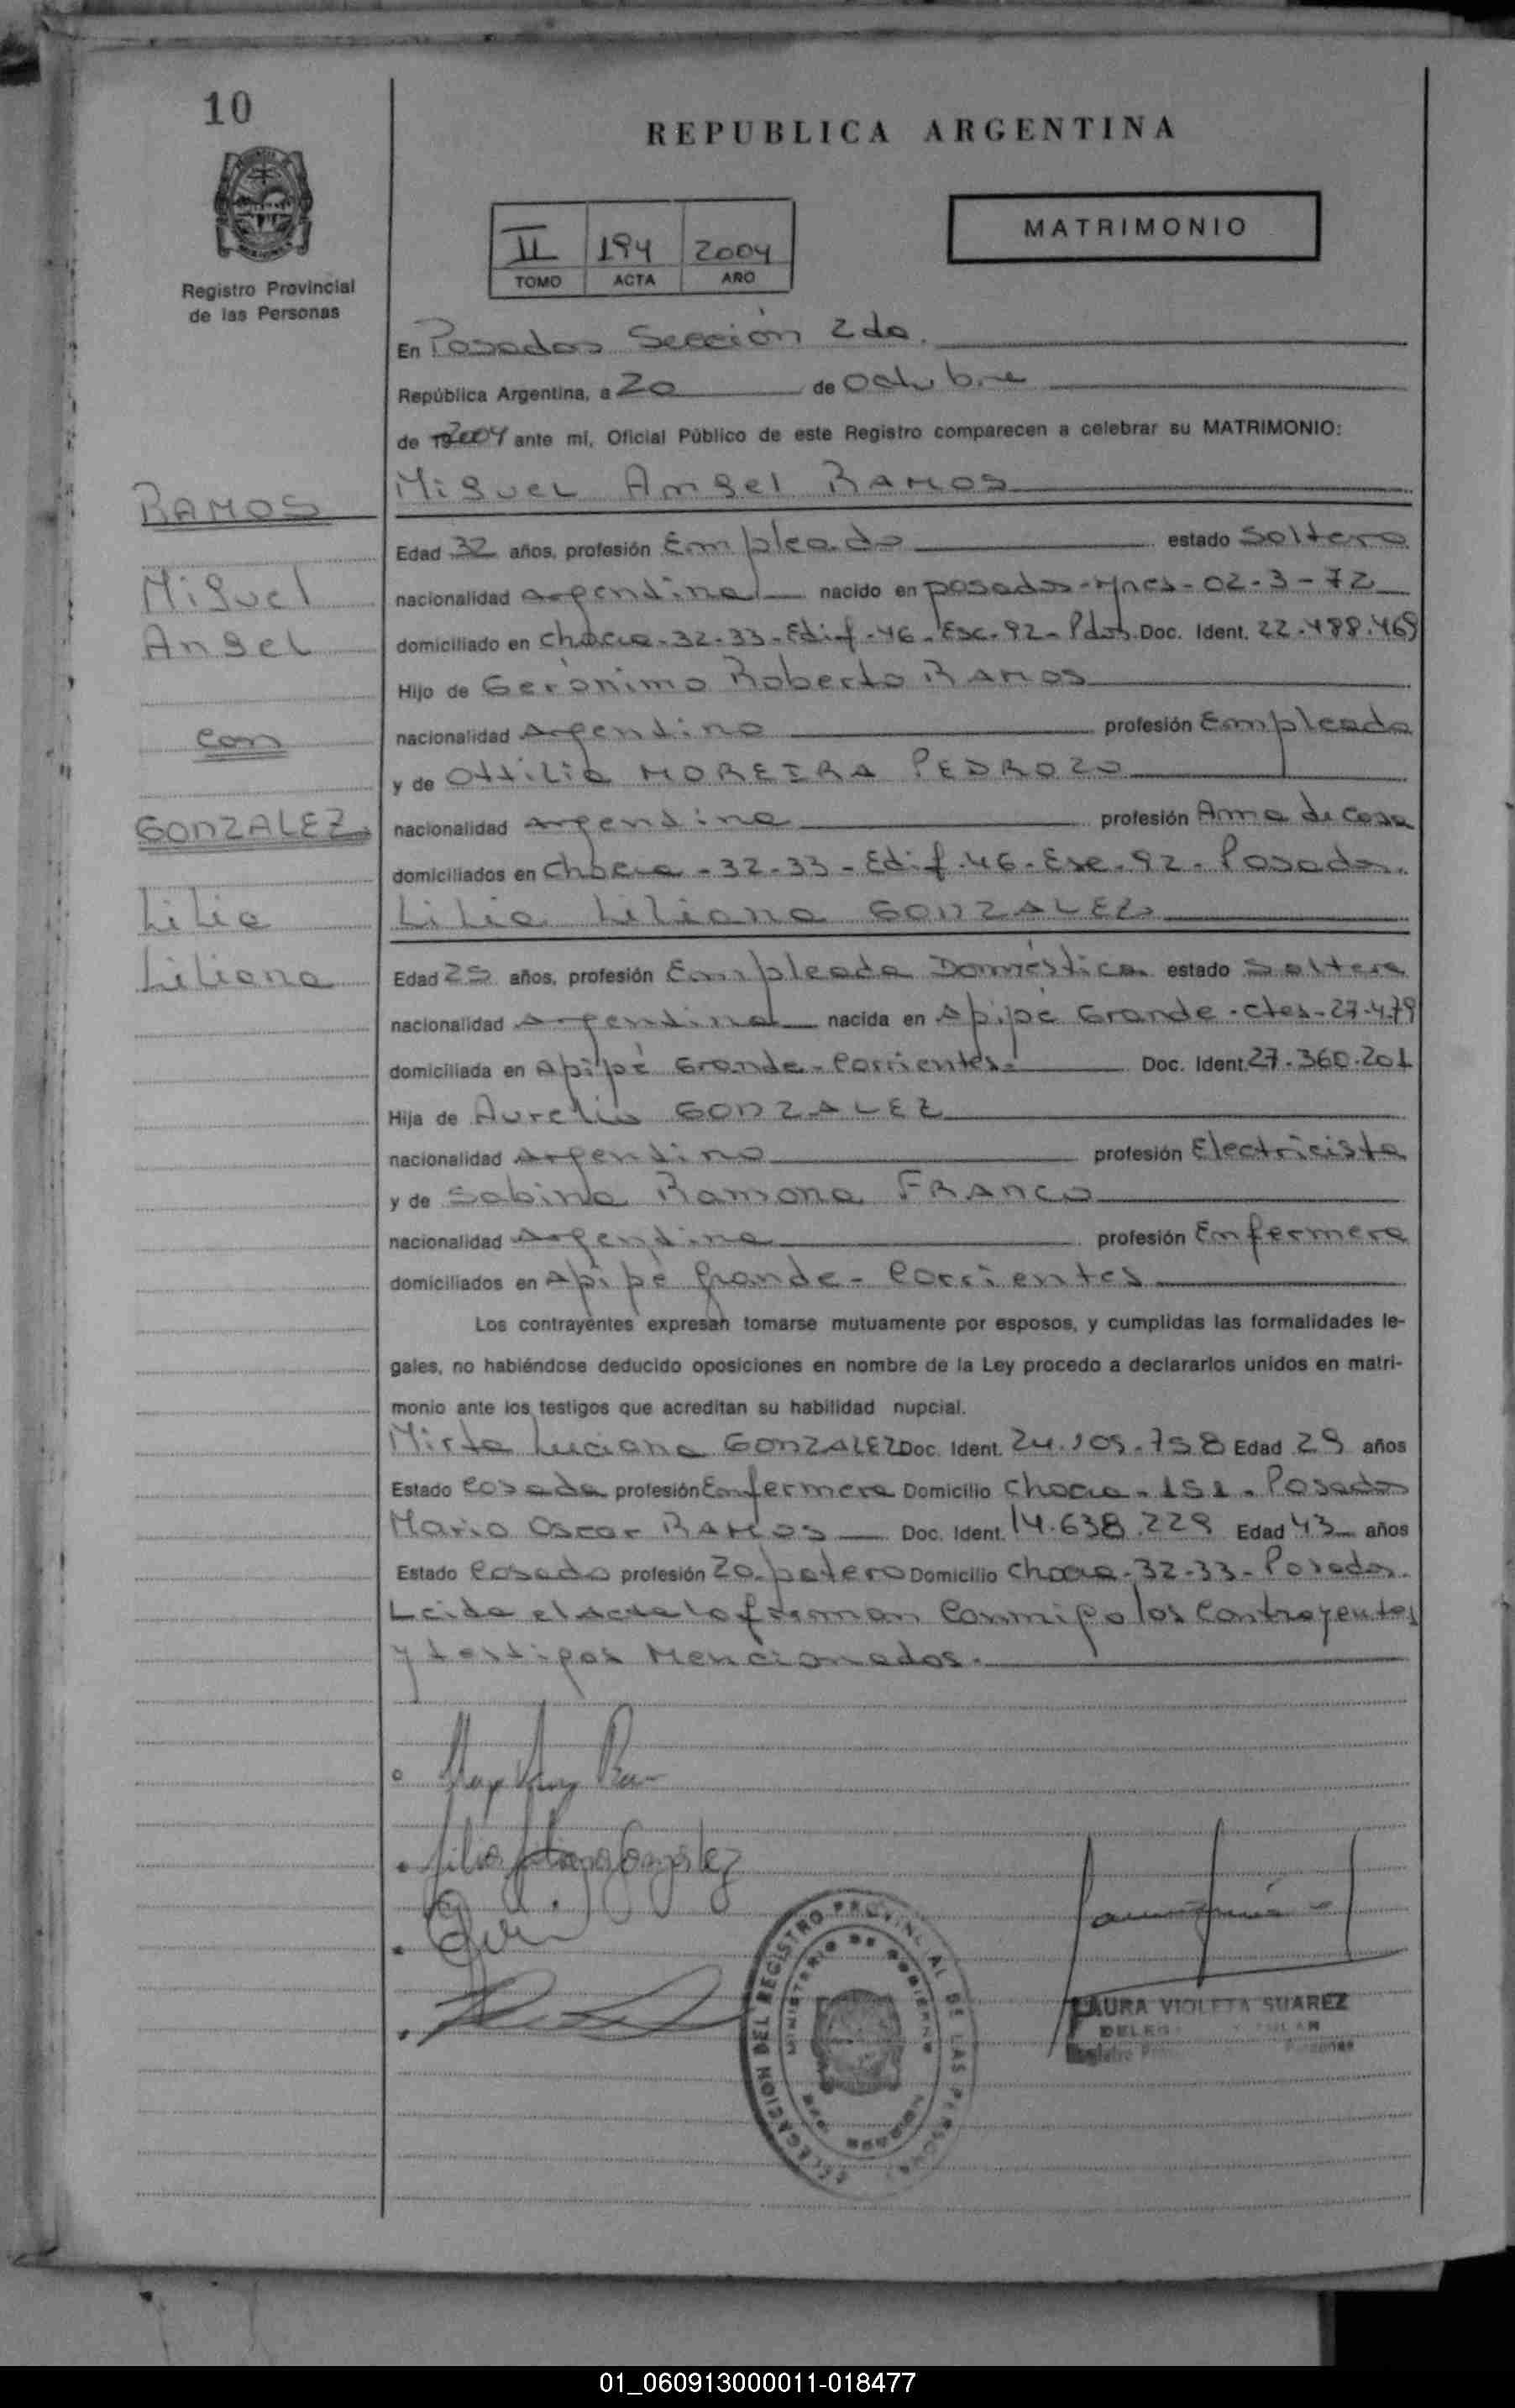 10
REPUBLICA ARGENTINA
MATRIMONIO
II 194 2004
TOMO ACTA AÑO
Registro Provincial
de las Personas
En Posadas Sección 2da.
República Argentina, a 20 de Octubre
de 2004 ante mí, Oficial Público de este Registro comparecen a celebrar su MATRIMONIO:
RAMOS
Miguel
Angel
con
GONZALEZ
Lilia
Liliana
Miguel Angel RAMOS
Edad 32 años, profesión Empleado estado Soltero
nacionalidad argentina nacido en posadas - Mnes - 02-3-72
domiciliado en Chacra - 32-33 - Edif - 46 - Esc - 92 - Pdas. Doc. Ident. 22.488.469
Hijo de Gerónimo Roberto RAMOS
nacionalidad Argentino profesión Empleado
y de Ottilia MOREIRA PEDROZO
nacionalidad argentina profesión Ama de Casa
domiciliados en Chacra - 32-33 - Edif. 46 - Esc - 92 - Posadas.
Lilia Liliana GONZALEZ
Edad 25 años, profesión Empleada Doméstica estado Soltera
nacionalidad argentina nacida en Apipé Grande - ctes - 27-4-79
domiciliada en Apipé Grande - Corrientes - Doc. Ident. 27.360.201
Hija de Aurelio GONZALEZ
nacionalidad argentino profesión Electricista
y de Sabina Ramona FRANCO
nacionalidad Argentina profesión Enfermera
domiciliados en Apipé Grande - Corrientes
Los contrayentes expresan tomarse mutuamente por esposos, y cumplidas las formalidades le-
gales, no habiéndose deducido oposiciones en nombre de la Ley procedo a declararlos unidos en matri-
monio ante los testigos que acreditan su habilidad nupcial.
Mirta Luciana GONZALEZ Doc. Ident. 24.105.758 Edad 29 años
Estado Casada profesión Enfermera Domicilio Chacra - 151 - Posadas
Mario Oscar RAMOS Doc. Ident. 14.638.229 Edad 43 años
Estado Casado profesión Zapatero Domicilio Chacra - 32-33 - Posadas.
Leida el acta la firman conmigo los contrayentes
y testigos Mencionados.
Lilia Liliana Gonzalez
DELEGACION DEL REGISTRO PROVINCIAL DE LAS PERSONAS
MINISTERIO DE GOBIERNO
LAURA VIOLETA SUAREZ
01_060913000011-018477